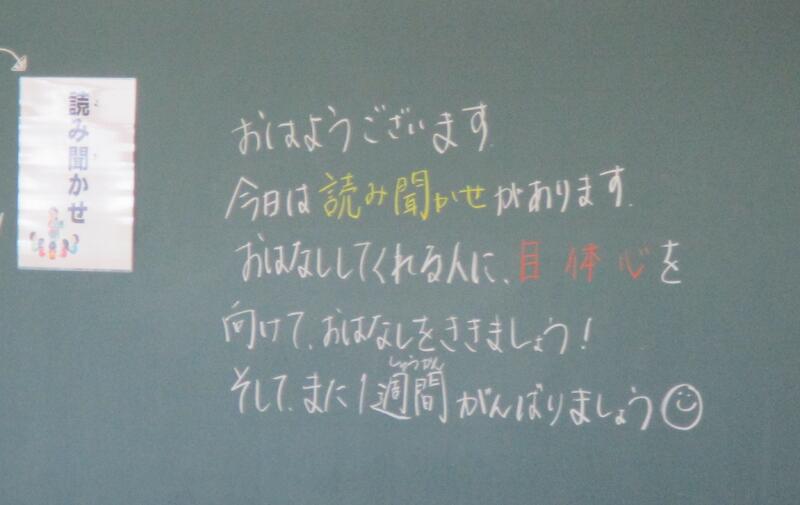 読み聞かせ
おはようございます.
今日は読み聞かせがあります.
おはなししてくれる人に、目 体 心を
向けて、おはなしをききましょう!
しゅうかん
そして、また1週間がんばりましょう